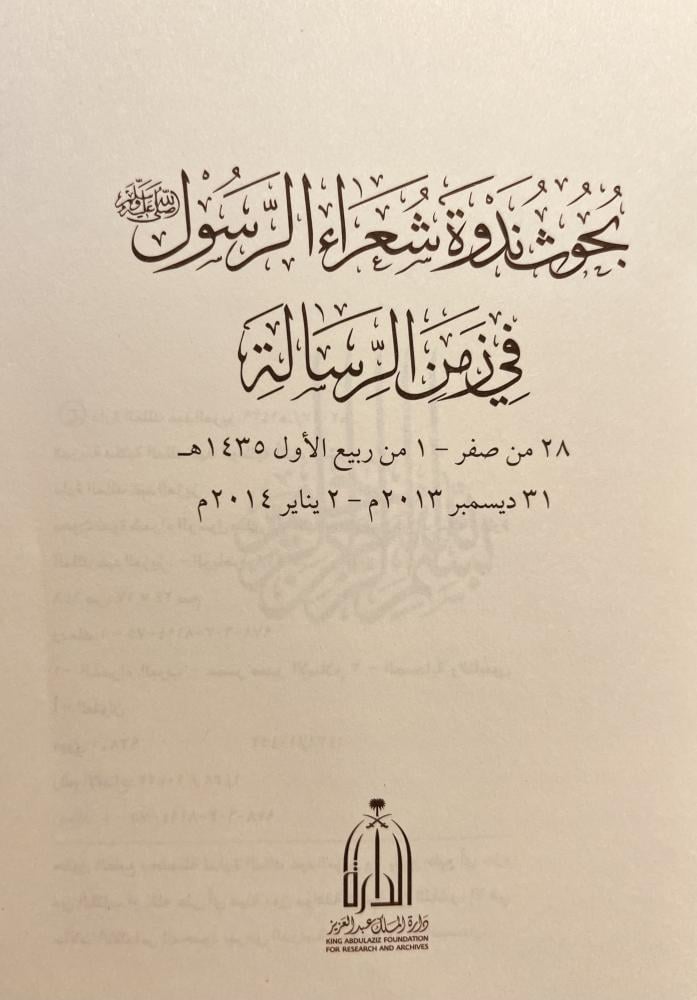 بُحُوثُ نَدْوَةِ شُعَرَاءِ الرَّسُوْلِ ﷺ
فِي زَمَنِ الرِّسَالَةِ
٢٨ من صفر - ١ من ربيع الأول ١٤٣٥هـ
٣١ ديسمبر ٢٠١٣م - ٢ يناير ٢٠١٤م
الدارة
دارة الملك عبدالعزيز
KING ABDULAZIZ FOUNDATION
FOR RESEARCH AND ARCHIVES